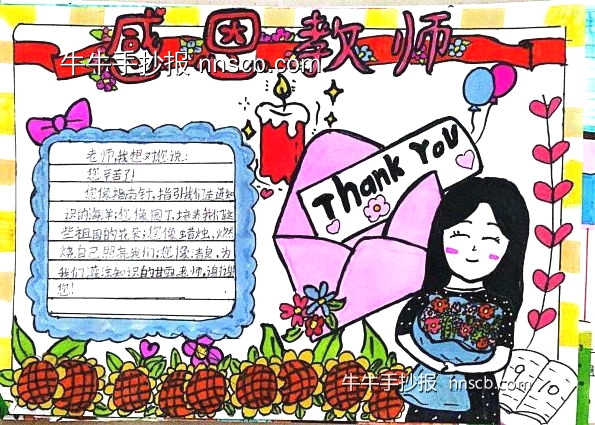 感恩教师
牛牛手抄报 nnscb.com
Thank You
老师,我想对您说:
您辛苦了!
您像指南针,指引我们走进知
识的海洋;您像园丁,培养我们这
些祖国的花朵;您像蜡烛,燃
烧自己照亮我们;您像 为
我们 知识的甘露,老师,谢谢
您!
牛牛手抄报 nnscb.com
9 10